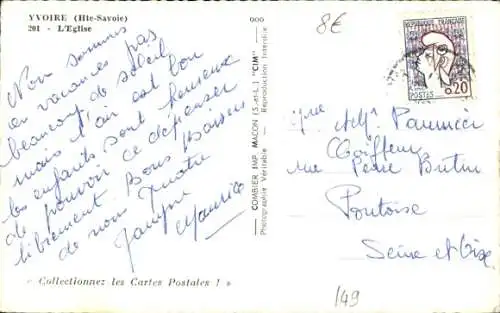 YVOIRE (Hte-Savoie)
201 - L'Eglise
Nous sommes
en vacances pas
beaucoup de soleil
mais l'air est bon
les enfants sont heureux
de pouvoir se dépenser
librement. Bons baisers
de nous quatre
Maurice
« Collectionnez les Cartes Postales ! »
COMBIER IMP. MACON (S.-et-L.) "CIM"
Photographie Véritable Reproduction Interdite
8€
REPUBLIQUE FRANÇAISE
POSTES 0,20
Coiffeur
rue Pierre Butin
Pontoise
Seine et Oise
149